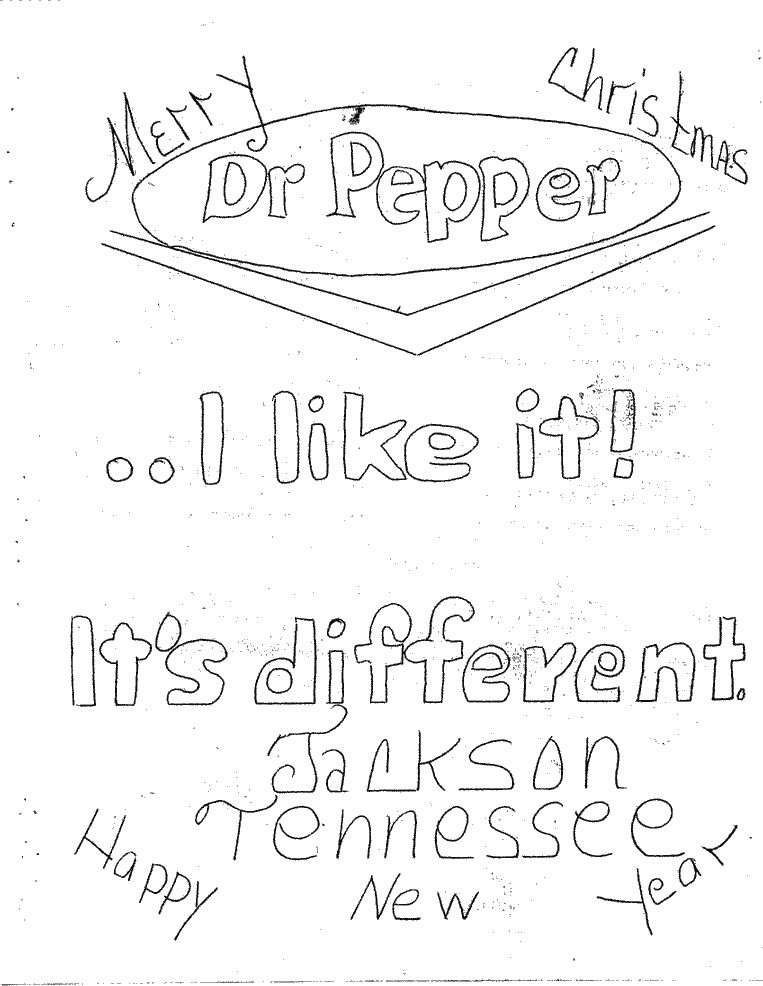 Merry Christmas
Dr Pepper
..I like it!
It's different.
Jackson
Tennessee
Happy New Year